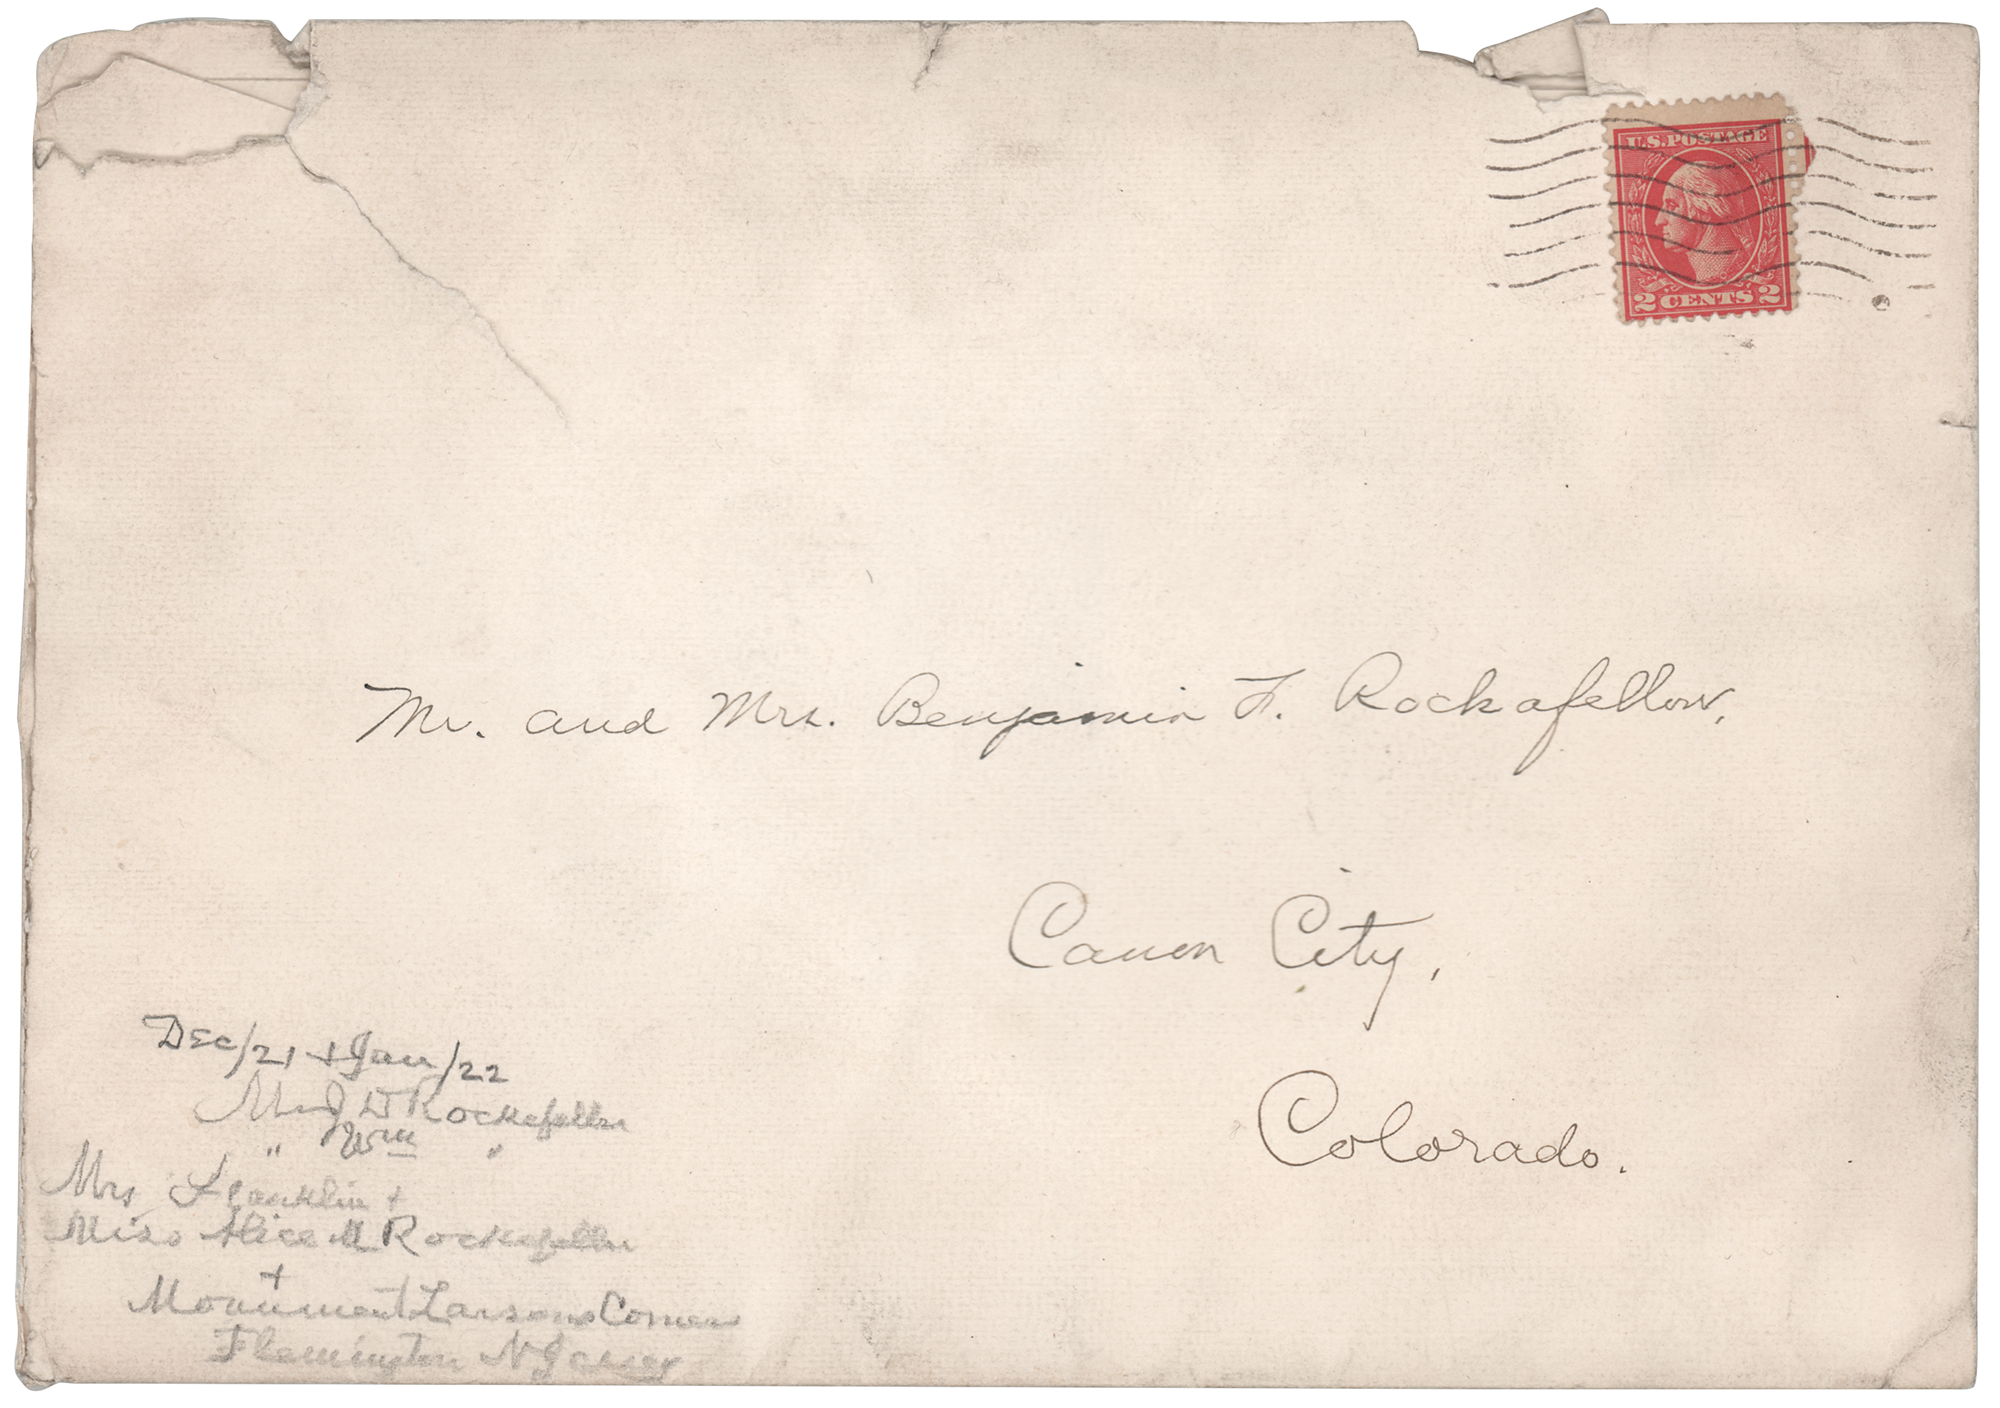 U.S. POSTAGE
2 CENTS 2
Mr. and Mrs. Benjamin F. Rockafellow,
Canon City,
Colorado.
Dec/21 + Jan/22
J D Rockefeller
" Wm "
Mrs Franklin +
Miss Alice M Rockefeller
+
Monument Larsons Corner
Flemington N Jersey